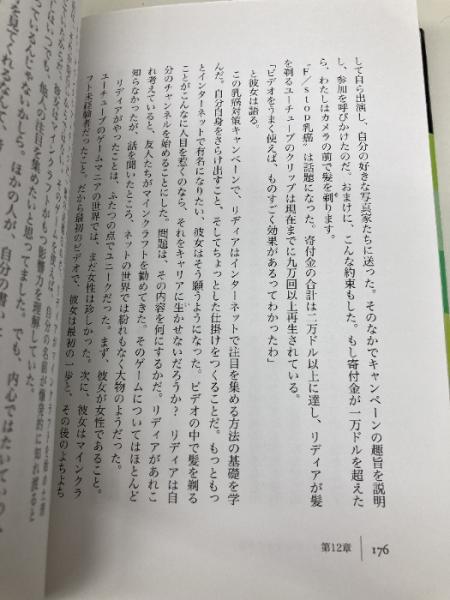 して自ら出演し、自分の好きな写真家たちに送った。そのなかでキャンペーンの趣旨を説明
し、参加を呼びかけたのだ。おまけに、こんな約束もした。もし寄付金が一万ドルを超えた
ら、わたしはカメラの前で髪を剃ります。
"F／stop乳癌"は話題になった。寄付金の合計は二万ドル以上に達し、リディアが髪
を剃るユーチューブのクリップは現在までに九万回以上再生されている。
「ビデオをうまく使えば、ものすごく効果があるってわかったわ」
と彼女は語る。
この乳癌対策キャンペーンで、リディアはインターネットで注目を集める方法の基礎を学
んだ。自分自身をさらけ出すこと、そしてちょっとした仕掛けをつくることだ。もっともっ
とインターネットで有名になりたい、彼女はそう願うようになった。ビデオの中で髪を剃る
ことがこんなに人目を惹くのなら、それをキャリアに生かせないだろうか？　リディアは自
分のチャンネルを始めることにした。問題は、その内容を何にするかだ。リディアがあれこ
れ考えていると、友人たちがマインクラフトを勧めてきた。そのゲームについてはほとんど
知らなかったが、話を聞いたところ、ネットの世界では紛れもなく大物のようだった。
リディアがやったことは、ふたつの点でユニークだった。まず、彼女が女性であること。
ユーチューブのゲームマニアの世界では、まだ女性は珍しかった。次に、彼女はマインクラ
フト未経験者だったこと。だから最初のビデオで、彼女は最初の一歩と、その後のよちよち
第12章
176